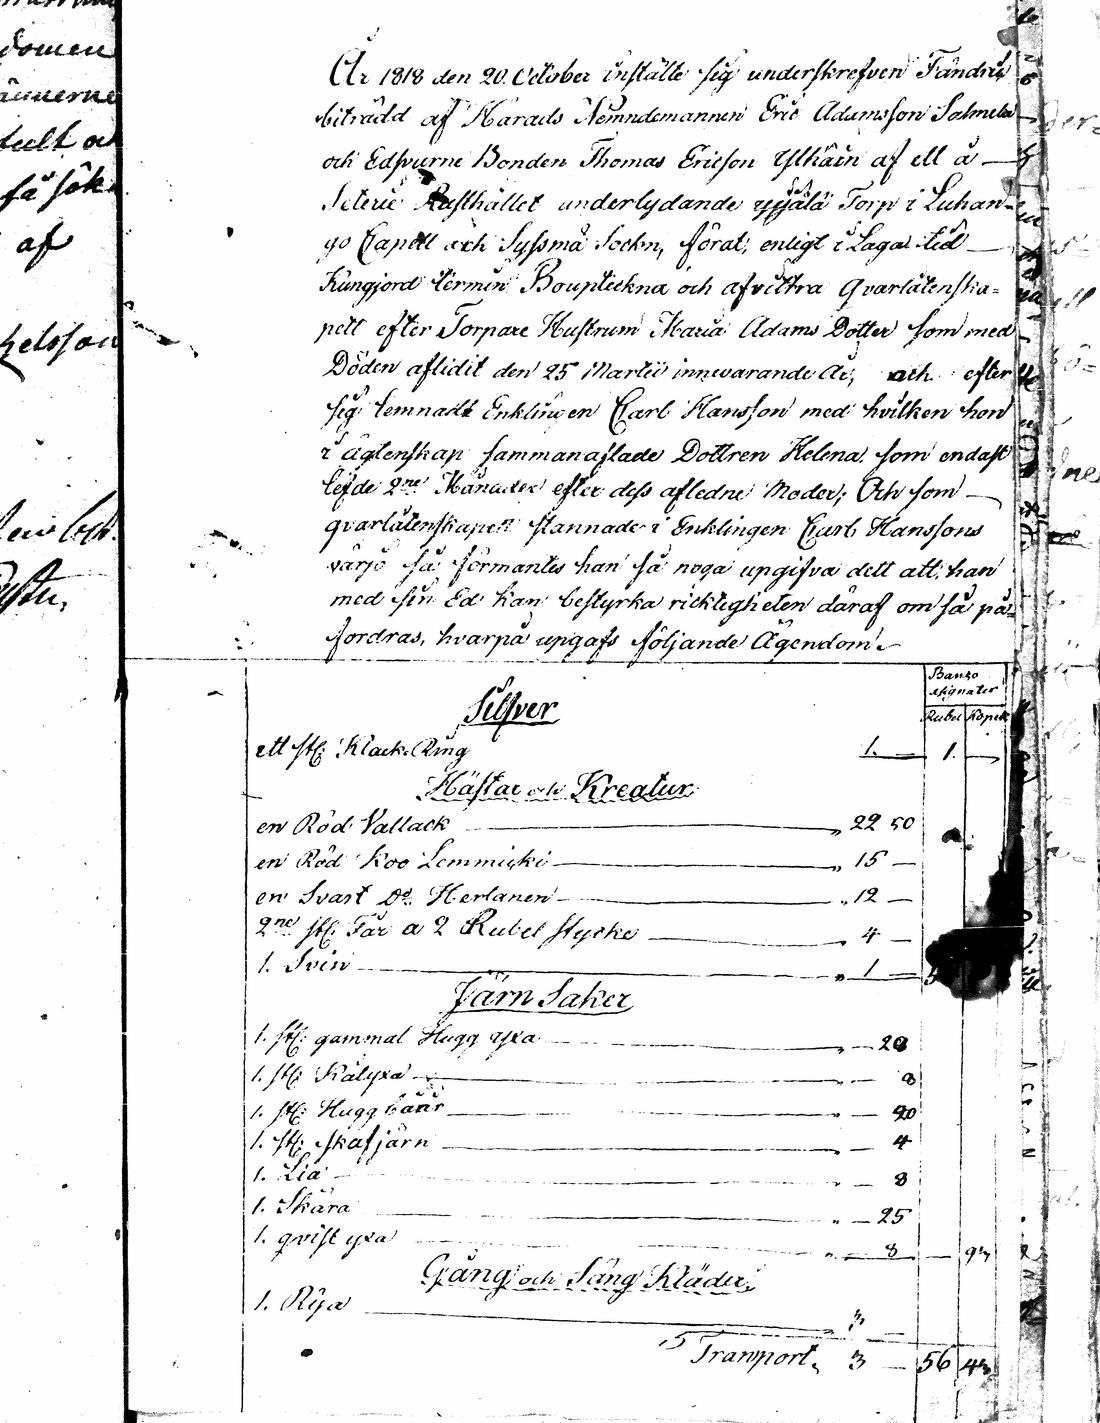 domen
af
År 1818 den 20. October instälte sig underskrefven
biträdd af Härads Nemndemannen Eric Adamsson Salmela
och Edsvurne Bonden Thomas Ericson Ylhäin af ett å
Seterie Rusthållet underlydande Torp i Luhan-
go Capell och Syssmä Sockn, förat, enligt i Laga tid
Kungjord termin Boupteckna och afvittra Qvarlåtenska-
pett efter Torpare Hustrun Maria Adams Dotter som med
Döden aflidit den 25 Martii innevarande År, och efter
sig lemnadt Enklingen Carl Hansson med hvilken hon
i ägtenskap sammanaflade Dottren Helena som endast
lefde 2ne Månader efter dess afledne Moder; Och som
qvarlåtenskapen stannade i Enklingen Carl Hanssons
värjo så förmantes han så noga upgifva dett att han
med sin Ed kan bestyrka ricktigheten däraf om så på-
fordras, hvarpå upgafs följande Ägendom
Banco
assignater
Rubel Kopek
Silfver
ett st: Klack Ring 1. — 1. —
Hästar och Kreatur
en Röd Vallack " 22 50
en Röd Koo Lemmicki " 15 —
en Svart Do Herlanen " 12 —
2ne st: Får a 2 Rubel stycke " 4 —
1. Svin " 1 —
Järn Saker
1. st: gammal Hugg yxa " — 20
1. st: Kålyxa " — 8
1. st: Hugg " — 20
1. st: skafjärn 4
1. Lia " — 8
1. Skära " — 25
1. qvist yxa " — 8 — 93
Gång och Säng Kläder
1. Rya " 3 —
Transport 3 — 56 43